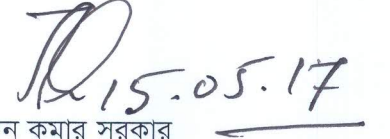 15.05.17
ন কুমার সরকার